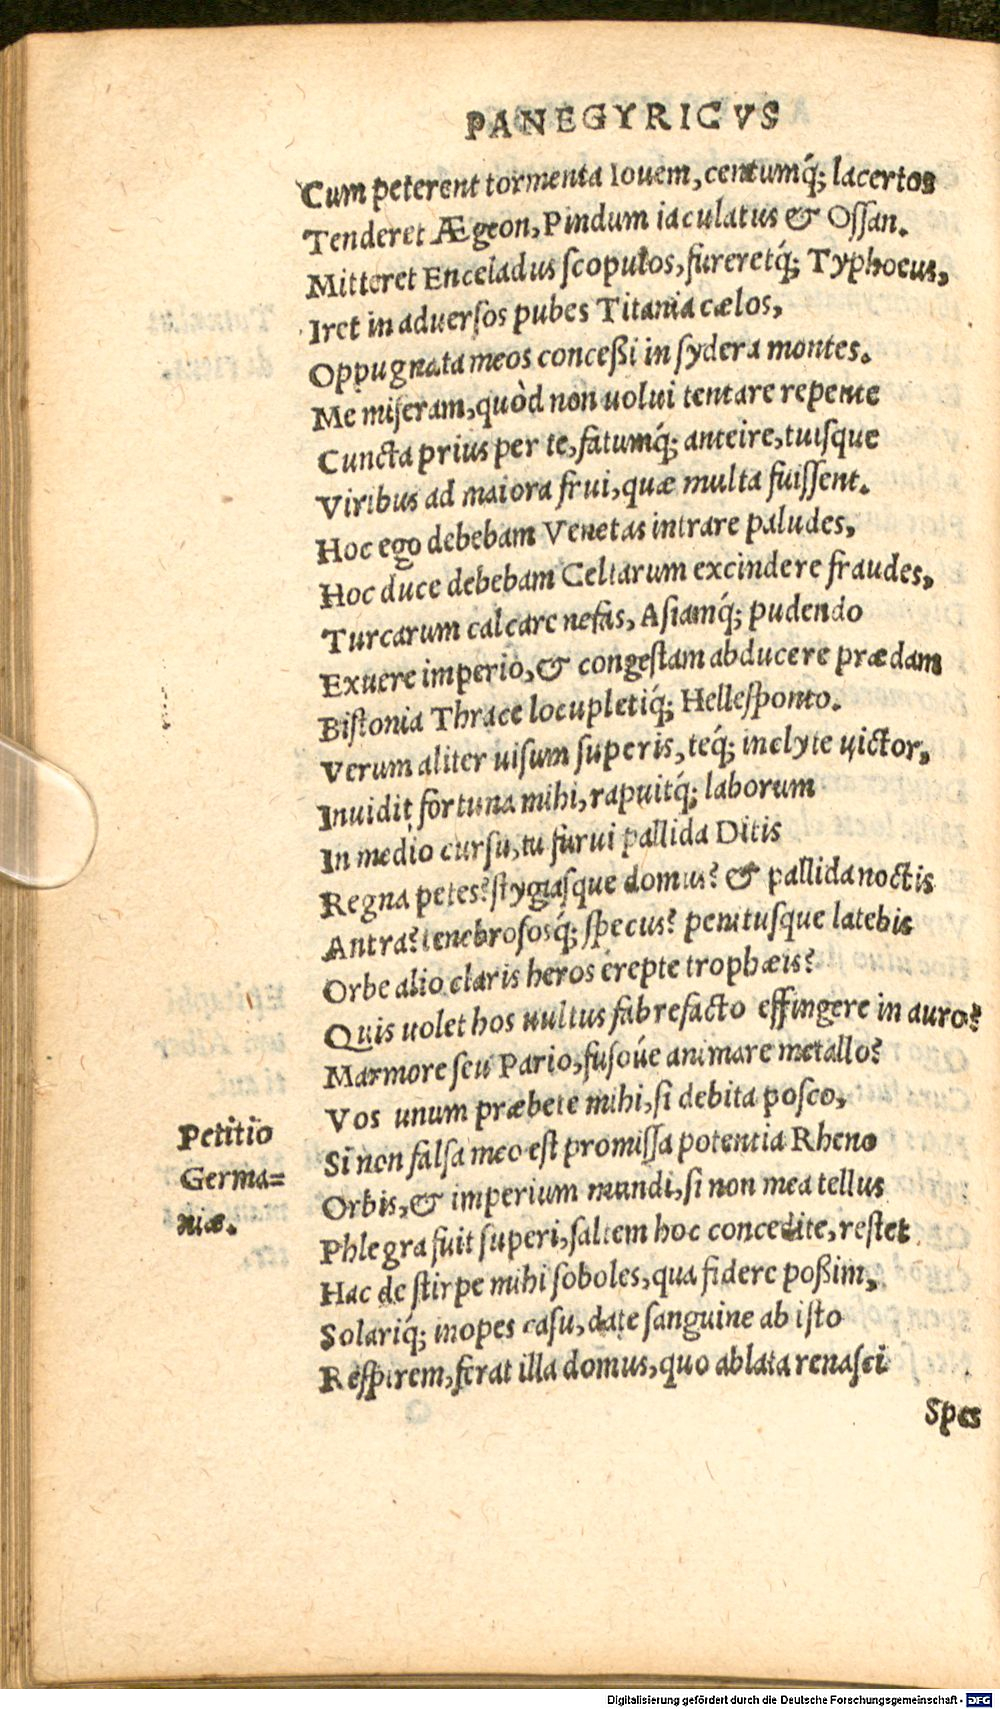 PANEGYRICVS
Cum peterent tormenta Iouem, centumq́; lacertos
Tenderet Ægeon, Pindum iaculatus & Ossan.
Mitteret Enceladus scopulos, fureretq́; Typhoeus,
Iret in aduersos pubes Titania cælos,
Oppugnata meos conceßi in sydera montes.
Me miseram, quòd non uolui tentare repente
Cuncta prius per te, fatumq́; anteire, tuisque
Viribus ad maiora frui, quæ multa fuissent.
Hoc ego debebam Venetas intrare paludes,
Hoc duce debebam Celtarum excindere fraudes,
Turcarum calcare nefas, Asiamq́; pudendo
Exuere imperio, & congestam abducere prædam
Bistonia Thrace locupletiq́; Hellesponto.
Verum aliter uisum superis, teq́; inclyte uictor,
Inuidit fortuna mihi, rapuitq́; laborum
In medio cursu, tu furui pallida Ditis
Regna petes? stygiasque domus? & pallida noctis
Antra? tenebrososq́; specus? penitusque latebis
Orbe alio claris heros erepte trophæis?
Quis uolet hos uultus fabrefacto effingere in auro?
Marmore seu Pario, fusoúe animare metallo?
Vos unum præbete mihi, si debita posco,
Petitio
Germa=
niæ.
Si non falsa meo est promissa potentia Rheno
Orbis, & imperium mundi, si non mea tellus
Phlegra fuit superi, saltem hoc concedite, restet
Hac de stirpe mihi soboles, qua fidere poßim,
Solariq́; inopes casu, date sanguine ab isto
Respirem, ferat illa domus, quo ablata renasci
Spes
Digitalisierung gefördert durch die Deutsche Forschungsgemeinschaft - DFG